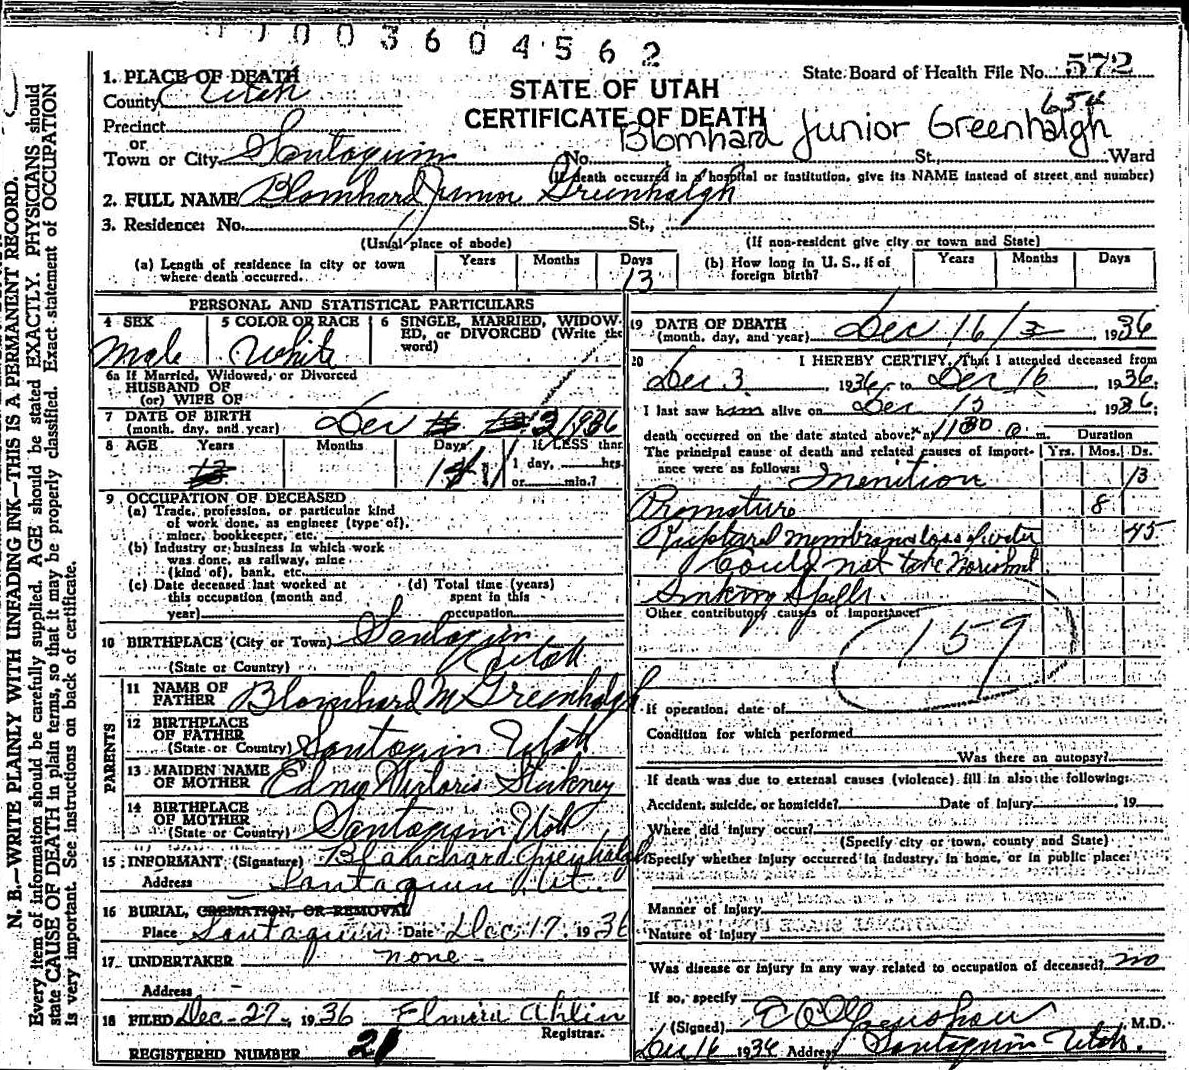 1003604562
1. PLACE OF DEATH
County Utah
STATE OF UTAH
CERTIFICATE OF DEATH
State Board of Health File No. 572
654
Precinct
or
Town or City Santaquin No. St., Ward
Blomhard Junior Greenhalgh
(If death occurred in a hospital or institution, give its NAME instead of street and number)
2. FULL NAME Blomhard Junior Greenhalgh
3. Residence: No. St.,
(Usual place of abode) (If non-resident give city or town and State)
(a) Length of residence in city or town where death occurred. Years Months Days 13
(b) How long in U. S., if of foreign birth? Years Months Days
PERSONAL AND STATISTICAL PARTICULARS
4 SEX Male
5 COLOR OR RACE White
6 SINGLE, MARRIED, WIDOWED, or DIVORCED (Write the word)
6a If Married, Widowed, or Divorced
HUSBAND OF
(or) WIFE OF
7 DATE OF BIRTH (month, day, and year) Dec 3 1936
8 AGE Years Months Days If LESS than 1 day, hrs. or min.?
9 OCCUPATION OF DECEASED
(a) Trade, profession, or particular kind of work done, as engineer (type of), miner, bookkeeper, etc.
(b) Industry or business in which work was done, as railway, mine (kind of), bank, etc.
(c) Date deceased last worked at this occupation (month and year)
(d) Total time (years) spent in this occupation
10 BIRTHPLACE (City or Town) Santaquin
(State or Country) Utah
PARENTS
11 NAME OF FATHER Blomhard M Greenhalgh
12 BIRTHPLACE OF FATHER (State or Country) Santaquin Utah
13 MAIDEN NAME OF MOTHER Edna Victoria Stickney
14 BIRTHPLACE OF MOTHER (State or Country) Santaquin Utah
15 INFORMANT (Signature) Blanchard Greenhalgh
Address Santaquin Ut.
16 BURIAL, CREMATION, OR REMOVAL
Place Santaquin Date Dec 17, 1936
17 UNDERTAKER none
Address
18 FILED Dec-27-, 1936 Elmira Ahlin
Registrar.
REGISTERED NUMBER 21
19 DATE OF DEATH (month, day, and year) Dec 16 1936
20 I HEREBY CERTIFY, That I attended deceased from
Dec 3, 1936, to Dec 16, 1936;
I last saw him alive on Dec 15, 1936;
death occurred on the date stated above, at 1130 a. m. Duration
The principal cause of death and related causes of importance were as follows: Yrs. Mos. Ds.
Inenition 13
Premature 8
Ruptured membranes loss of water 45
Could not take Norishmt.
Sinking Spells.
Other contributory causes of importance:
159
If operation, date of
Condition for which performed
Was there an autopsy?
If death was due to external causes (violence) fill in also the following:
Accident, suicide, or homicide? Date of Injury , 19
Where did injury occur?
(Specify city or town, county and State)
Specify whether injury occurred in industry, in home, or in public place:
Manner of Injury
Nature of Injury
Was disease or injury in any way related to occupation of deceased? no
If so, specify
(Signed) M.D.
Dec 16 1936 Address Santaquin Utah.
N. B.—WRITE PLAINLY WITH UNFADING INK—THIS IS A PERMANENT RECORD.
Every item of information should be carefully supplied. AGE should be stated EXACTLY. PHYSICIANS should
state CAUSE OF DEATH in plain terms, so that it may be properly classified. Exact statement of OCCUPATION
is very important. See instructions on back of certificate.